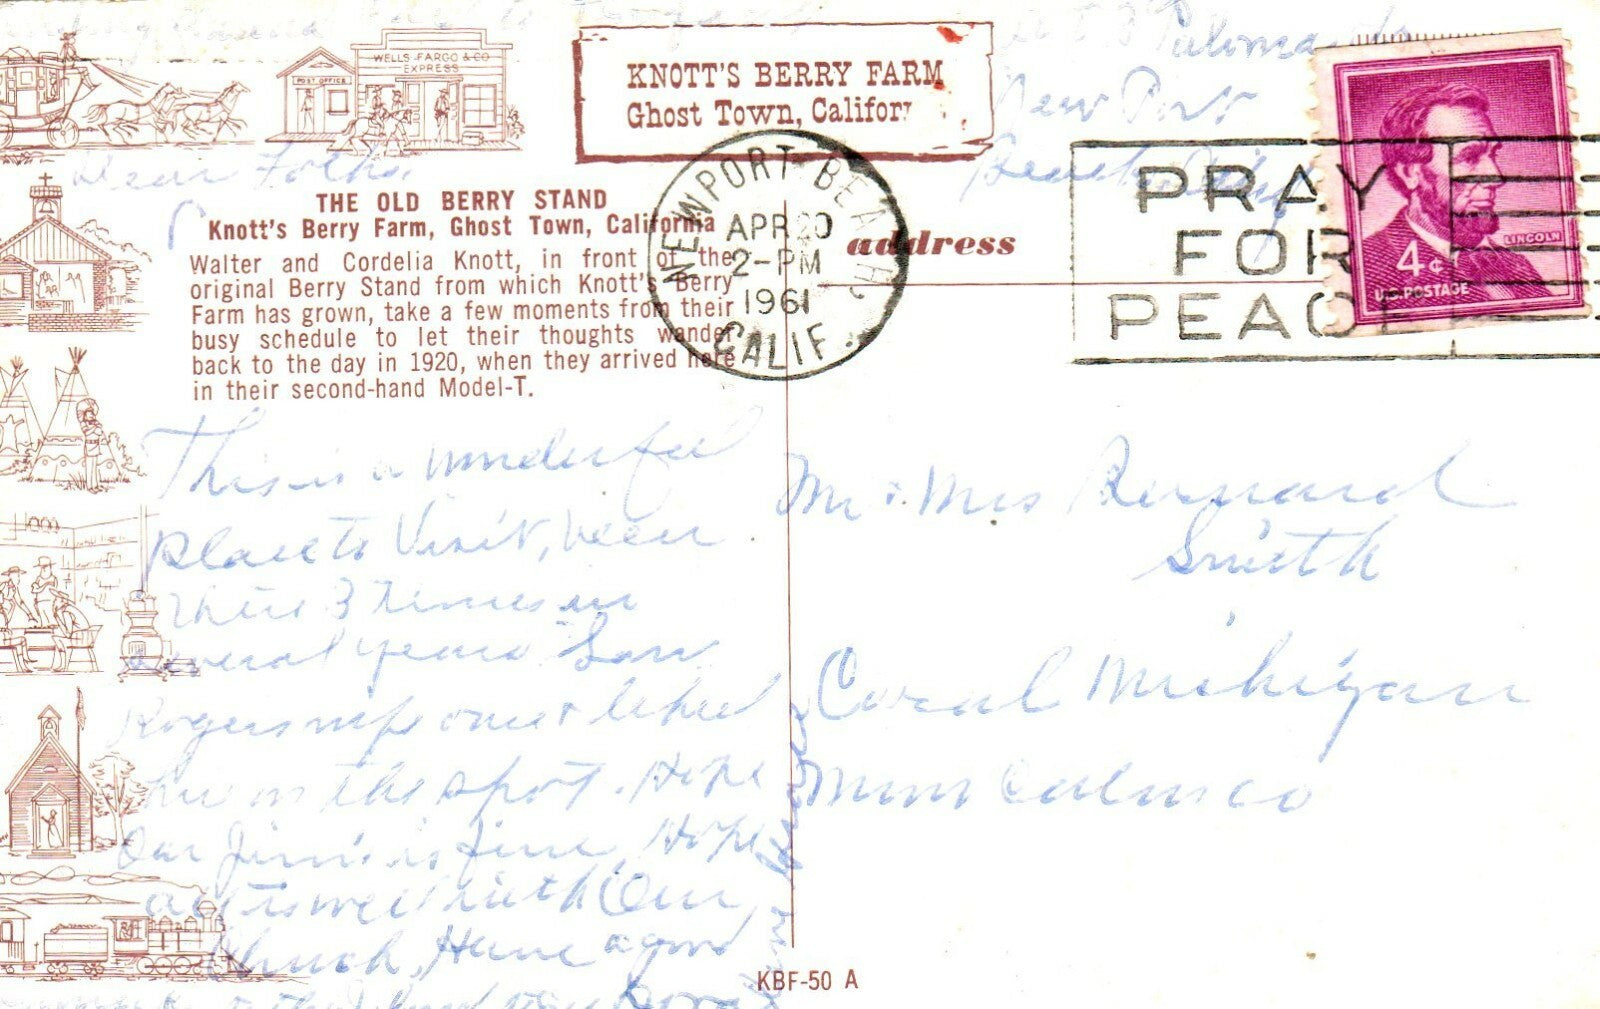 WELLS-FARGO & CO
EXPRESS
POST OFFICE
KNOTT'S BERRY FARM
Ghost Town, Califor
Palomar
New Port
Beach
Dear Folks,
THE OLD BERRY STAND
Knott's Berry Farm, Ghost Town, California
Walter and Cordelia Knott, in front of the
original Berry Stand from which Knott's Berry
Farm has grown, take a few moments from their
busy schedule to let their thoughts wander
back to the day in 1920, when they arrived here
in their second-hand Model-T.
NEWPORT BEACH,
APR 20
2-PM
1961
CALIF.
address
PRAY
FOR
PEACE
LINCOLN
4¢
U.S. POSTAGE
This is a wonderful
place to visit, been
here 3 times in
several years. Saw
Rogers once & liked
him on the spot. Hope
our Jim's is fine. Hope
all is well with Our
Church. Have a good
Mr & Mrs Bernard
Smith
Coral Michigan
Montcalm co
KBF-50 A